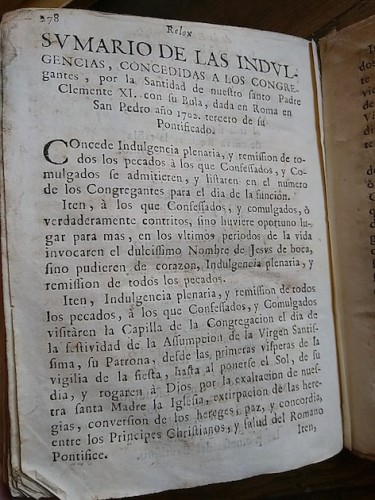 278
Relox
SVMARIO DE LAS INDVL-
GENCIAS, CONCEDIDAS A LOS CONGRE-
gantes, por la Santidad de nuestro santo Padre
Clemente XI. con su Bula, dada en Roma en
San Pedro año 1702. tercero de su
Pontificado.
COncede Indulgencia plenaria, y remission de to-
dos los pecados à los que Confessados, y Co-
mulgados se admitieren, y listaren en el numero
de los Congregantes para el dia de la funcion.
Iten, à los que Confessados, y comulgados, ò
verdaderamente contritos, sino huviere oportuno lu-
gar para mas, en los vltimos periodos de la vida
invocaren el dulcissimo Nombre de Jesvs de boca,
sino pudieren de corazon, Indulgencia plenaria, y
remission de todos los pecados.
Iten, Indulgencia plenaria, y remission de todos
los pecados, à los que Confessados, y Comulgados
visitàren la Capilla de la Congregacion el dia de
la festividad de la Assumpcion de la Virgen Santis-
sima, su Patrona, desde las primeras visperas de la
vigilia de la fiesta, hasta al ponerse el Sol, de su
dia, y rogaren à Dios por la exaltacion de nues-
tra santa Madre la Iglesia, extirpacion de las here-
gias, conversion de los hereges, paz, y concordia,
entre los Principes Christianos, y salud del Romano
Pontifice.
Iten,